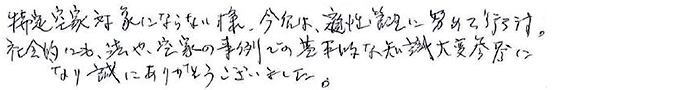 特定空家対象にならない様、今后は、適性管理に努めて行う汁。
社会的にも、法や、空家の事例での基本的な知識大変参考に
なり誠にありがとうございました。